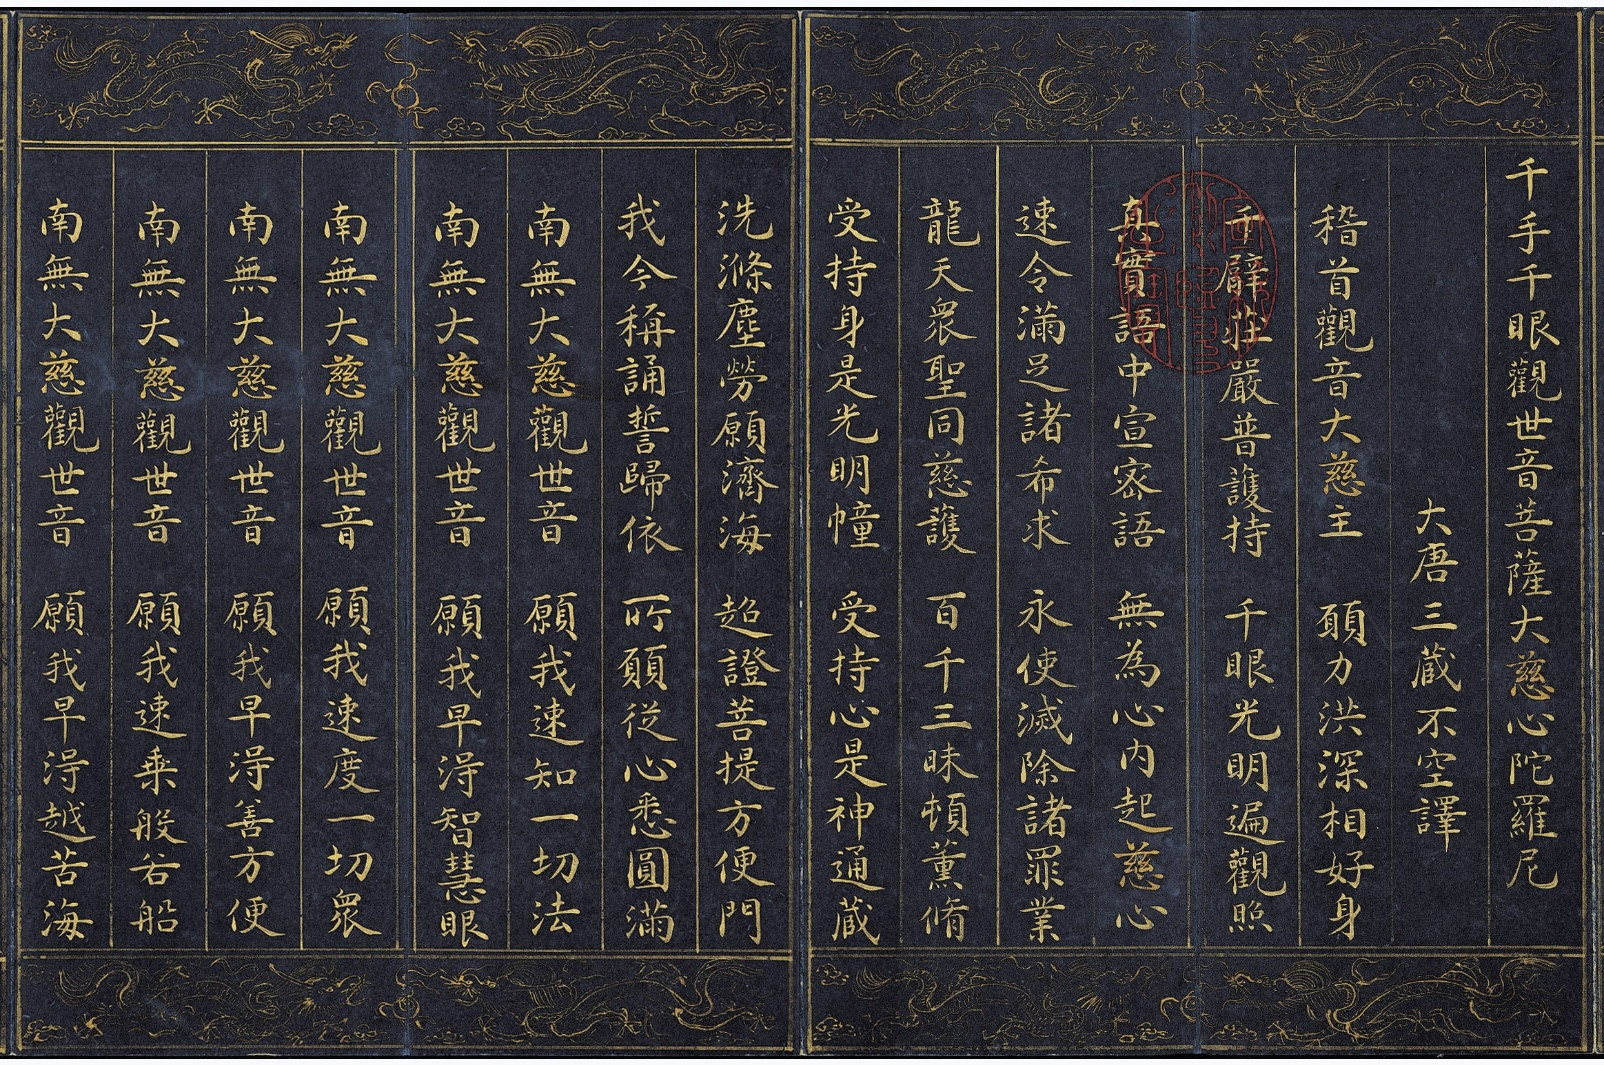 千手千眼觀世音菩薩大慈心陀羅尼
大唐三藏不空譯
稽首觀音大慈主　願力洪深相好身
千臂莊嚴普護持　千眼光明遍觀照
真實語中宣密語　無為心內起慈心
速令滿足諸希求　永使滅除諸罪業
龍天眾聖同慈護　百千三昧頓薰脩
受持身是光明幢　受持心是神通藏
洗滌塵勞願濟海　超證菩提方便門
我今稱誦誓歸依　所願從心悉圓滿
南無大慈觀世音　願我速知一切法
南無大慈觀世音　願我早得智慧眼
南無大慈觀世音　願我速度一切眾
南無大慈觀世音　願我早得善方便
南無大慈觀世音　願我速乘般若船
南無大慈觀世音　願我早得越苦海